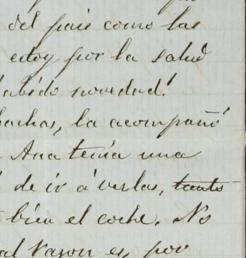 del pais como las
estoy por la salud
abido novedad!
hachas, la acompañó
Ana tenia una
de ir á verlas, tanto
bien el coche. No
al razon es, por